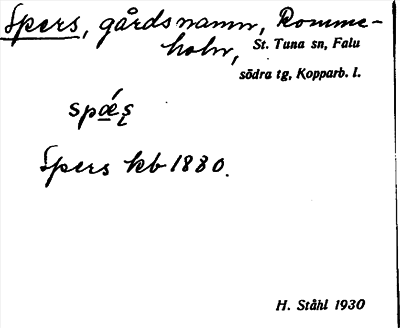 Spers, gårdsnamn, Romme-
holn, St. Tuna sn, Falu
södra tg, Kopparb. l.
spǽʂ
Spers kb 1880.
H. Ståhl 1930